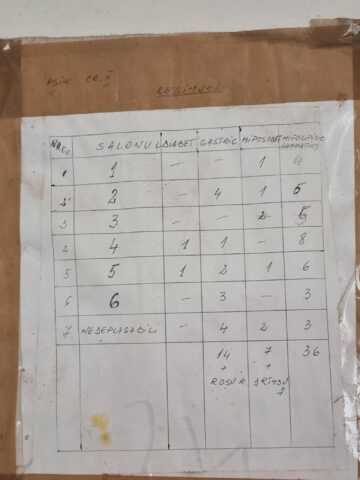 PSIH. CR. II
REGIMURI
NR. CR. SALONU DIABET GASTRIC HIPOSODAT HIPOLIPIDIC HEPATIC
1 1 - - 1 4
2 2 - 4 1 6
3 3 - - 2 5
4 4 1 1 - 8
5 5 1 2 1 6
6 6 - 3 - 3
7 NEDEPLASABILI - 4 2 3
14 7 36
+ +
ROȘU R